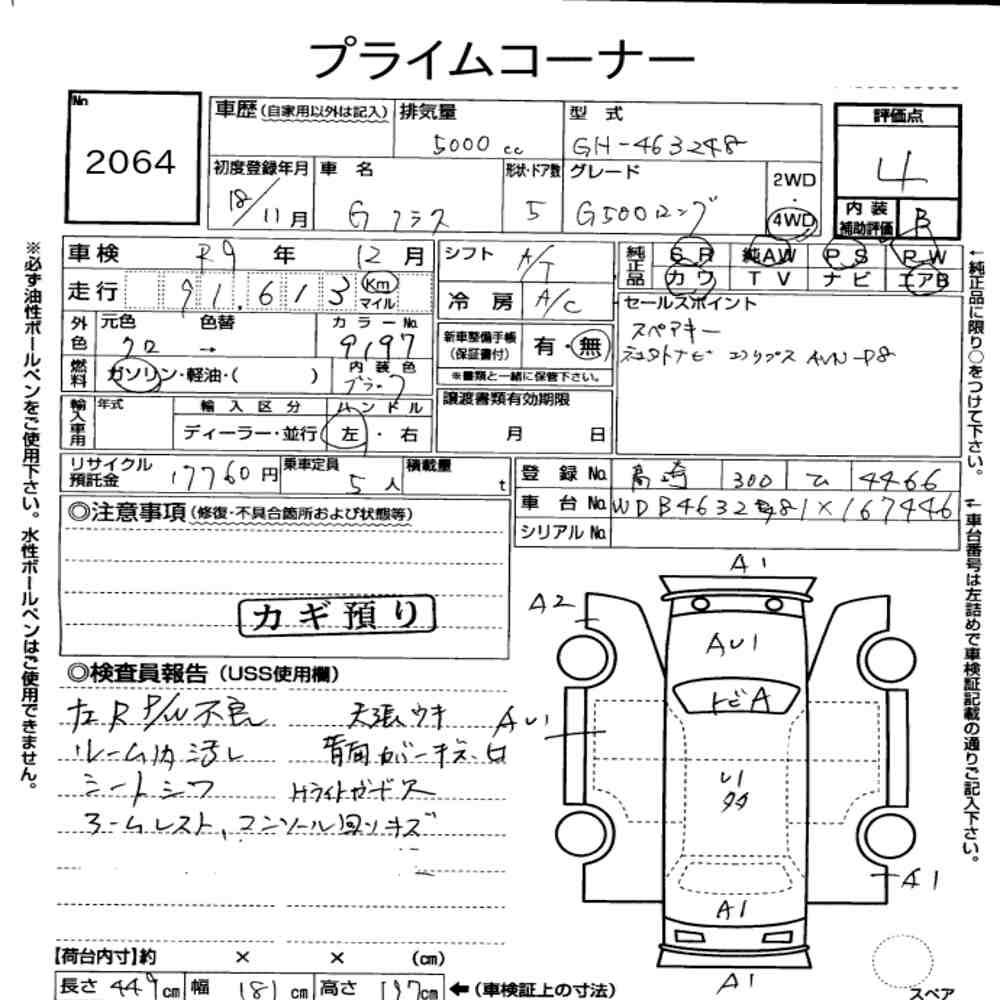 プライムコーナー
No
2064
車歴 (自家用以外は記入)
排気量
5000 cc
型式
GH-463248
評価点
4
初度登録年月
18/11月
車名
Gクラス
形状・ドア数
5
グレード
G500ロング
2WD
・
4WD
内装
補助評価
B
車検
R9 年 12月
シフト
A/T
純正品
SR 純AW PS PW
カワ TV ナビ エアB
走行
91,613
Km
マイル
冷房
A/C
セールスポイント
スペアキー
外色
元色
色替
カラーNo.
クロ →
9197
新車整備手帳
(保証書付)
有・無
※書類と一緒に保管下さい。
燃料
ガソリン・軽油・( )
内装色
ブラック
譲渡書類有効期限
月 日
輸入車用
年式
輸入区分
ハンドル
ディーラー・並行
左・右
リサイクル
預託金
17760円
乗車定員
5人
積載量
t
登録No.
高崎 300 て 4466
車台No.
シリアルNo.
◎注意事項 (修復・不具合箇所および状態等)
カギ預り
◎検査員報告 (USS使用欄)
左R P/W不良
天張ウキ
ルーム内汚レ
背面カバーキズ・凹
シートシワ
HライトガードS
アームレスト、コンソール回リキズ
A1
A2
AU1
トビA
AU1
U1
A1
A1
A1
【荷台内寸】約 × × (cm)
長さ 449cm
幅 181cm
高さ 197cm
←(車検証上の寸法)
スペア
※必ず油性ボールペンをご使用下さい。水性ボールペンはご使用できません。
←純正品に限り○をつけて下さい。
←車台番号は左詰めで車検証記載の通りご記入下さい。